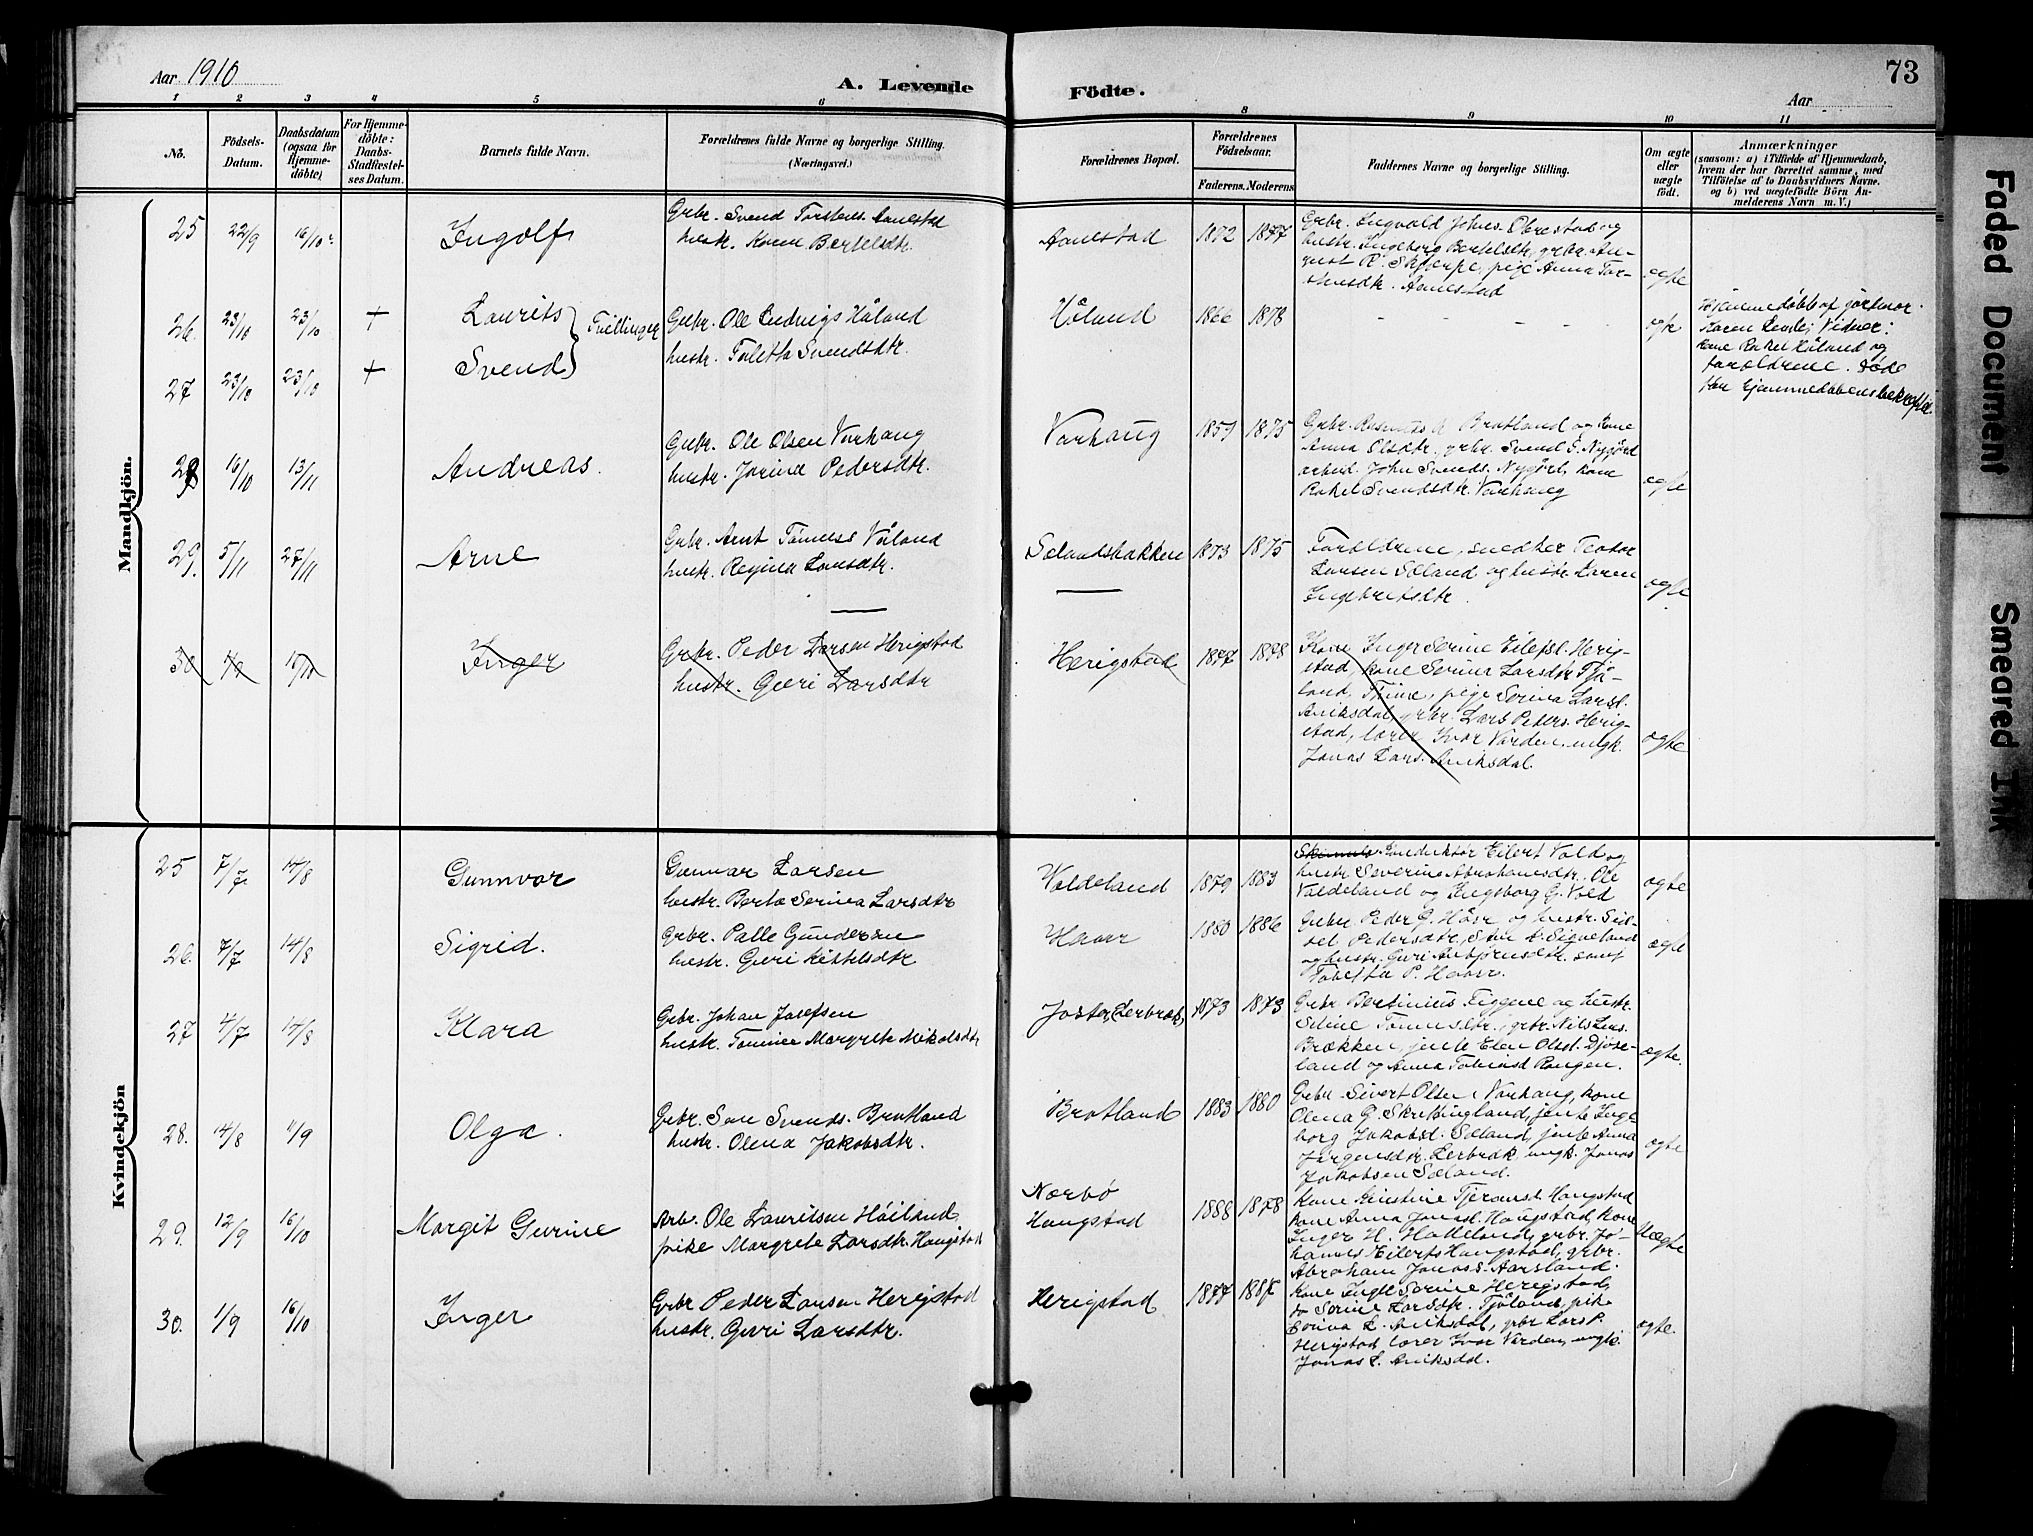 Aar 1910
A. Levende
Födte.
73
Aar
1 2 3 4 5 6 8 9 10 11
No.
Födsels-
Datum.
Daabsdatum
(ogsaa for
Hjemme-
döbte)
For Hjemme-
döbte:
Daabs-
Stadfæstel-
ses Datum.
Barnets fulde Navn.
Forældrenes fulde Navne og borgerlige Stilling.
(Næringsvei.)
Forældrenes Bopæl.
Forældrenes
Födselsaar.
Faderens. Moderens
Faddernes Navne og borgerlige Stilling.
Om ægte
eller
uægte
födt.
Anmærkninger
(saasom: a) i Tilfælde af Hjemmedaab,
hvem der har forrettet samme, med
Tilföielse af to Daabsvidners Navne.
og b) ved uægtefödte Börn An-
melderens Navn m. V.)
Mandkjön.
25 22/9 16/10 Ingolf
Grbr. Svend Torstens. Aanestad
hustr. Karen Bertelsdtr.
Aanestad 1872 1877
Grbr. Ingvald Johns. Obrestad og
hustr. Ingeborg Bertelsdtr., grbr. Au-
gust R. Skjerpe, pige Anna Tor-
stensdtr. Aanestad
ægte
26. 23/10 23/10 + Laurits
27 23/10 23/10 + Svend
Tvillinger
Grbr. Ole Ludvigs Håland
hustr. Taletta Svendsdtr.
Håland 1866 1878
- - - -
ægte
Hjemmedöbt af jordmor
Karen Vidner:
kone Rakel Håland og
forældrene. Döde
för hjemmedåbens bekræftel.
28 16/10 13/11 Andreas.
Grbr. Ole Olsen Varhaug
hustr. Jorina Pedersdtr.
Varhaug 1859 1875
Grbr. Rasmus Brotland og kone
Anna Olsdtr., grbr. Svend S. Nygård
arbeid. John Svends. Nygård, kone
Rakel Svendsdtr. Varhaug
ægte
29. 5/11 27/11 Arne
Grbr. Arnt Tönness Våland
hustr. Regina Larsdtr.
Sælandsbakken 1873 1875
Forældrene, snedker Teodor
Larsen Sæland og hustr. Karen
Ingebretsdtr.
ægte
30. 1/9 16/10 Inger
Grbr. Peder Larsen Herigstad
hustr. Guri Larsdtr
Herigstad 1877 1878
Kone Inger Serine Eilefsd. Herig-
stad, kone Serina Larsdtr Tjå-
land, Time, pige Serina Larsd.
Aniksdal, grbr. Lars Peders. Herig-
stad, lærer Ivar Varden, ungk.
Jonas Lars. Aniksdal.
ægte
Kvindekjön
25 7/7 14/8 Gunnvor
Gunnar Larsen
hustr. Berta Serina Larsdtr
Valdeland 1879 1883
konduktör Eilert Vold og
hustr. Severine Abrahamsdtr., Ole
Valdeland og Ingeborg G. Vold
ægte
26. 7/7 14/8 Sigrid.
Grbr. Palle Gundersen
hustr. Guri Kittelsdtr
Haarr 1880 1886
Grbr. Peder G. Håar og hustr. Sid-
sel Pedersdtr, Sven A. Sigueland
og hustr. Guri Asbjörnsdtr. samt
Tabetta P. Haarr.
ægte
27 4/7 14/8 Klara
Grbr. Johan Josefsen
hustr. Tomine Margrete Mikalsdtr
Josten, Lerbræk, 1873 1873
Grbr Bertinius Figgene og hustr.
Seline Tönnesdtr., grbr. Nils Lars.
Brækken, jente Elen Olsd. Djöse-
land og Anna Tobiasd Rangen.
ægte.
28. 14/8 11/9 Olga.
Grbr. Sven Svends. Brotland
hustr. Olena Jakobsdtr.
Brotland 1883 1880
Grbr. Sivert Olsen, Varhaug, kone
Olena G. Skrettingland, jente Inge-
borg Jakobsd. Sæland, jente Anna
Jörgensdtr. Lerbræk, ungk. Jonas
Jakobsen Sæland.
ægte
29. 12/9 16/10 Margit Gurine
Arb. Ole Lauritsen Höiland,
pike Margrete Larsdtr. Haugstad
Nærbö
Haugstad 1888 1878
Kone Kristine Tjeransd. Haugstad
kone Anna Jonasd. Haugstad, kone
Inger H. Hatteland, grbr. Jo-
hannes Eilerts Haugstad, grbr.
Abraham Jonass. Aarsland.
Uægte
30. 1/9 16/10 Inger
Grbr Peder Larsen Herigstad
hustr. Guri Larsdtr.
Herigstad 1877
Kone Inger Serine Herigstad,
do Serine Larsdtr. Tjåland, pike
Serina L. Aniksdal, grbr Lars P.
Herigstad, lærer Ivar Varden, ungk.
Jonas L. Aniksdal.
ægte.
Faded Document
Smeared Ink